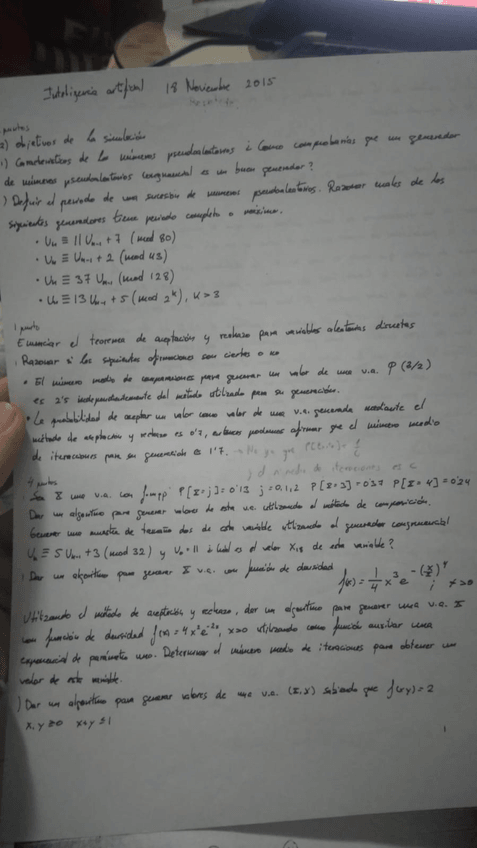 Inteligencia artificial 18 Noviembre 2015
puntos
a) objetivos de la simulación
) Características de los números pseudoaleatorios ¿Cómo comprobarías que un generador
de números pseudoaleatorios congruencial es un buen generador?
) Definir el periodo de una sucesión de números pseudoaleatorios. Razonar cuales de los
siguientes generadores tiene periodo completo o máximo.
• Un ≡ 11 Un-1 + 7 (mod 80)
• Un ≡ Un-1 + 2 (mod 43)
• Un ≡ 37 Un-1 (mod 128)
• Un ≡ 13 Un-1 + 5 (mod 2^k), k > 3
1 punto
Enunciar el teorema de aceptación y rechazo para variables aleatorias discretas
Razonar si las siguientes afirmaciones son ciertas o no
• El número medio de comparaciones para generar un valor de una v.a. P(3/2)
es 2'5 independientemente del método utilizado para su generación.
• La probabilidad de aceptar un valor como valor de una v.a. generada mediante el
método de aceptación y rechazo es 0'7, entonces podemos afirmar que el número medio
de iteraciones para su generación es 1'7.
y el nº medio de iteraciones es c
4 puntos
Sea X una v.a. con f.m.p. P[X=j]=0'13 j=0,1,2 P[X=3]=0'37 P[X=4]=0'24
Dar un algoritmo para generar valores de esta v.a. utilizando el método de composición.
Generar una muestra de tamaño dos de esta variable utilizando el generador congruencial
Un ≡ 5 Un-1 + 3 (mod 32) y U0 = 11 ¿Cuál es el valor X18 de esta variable?
) Dar un algoritmo para generar X v.a. con función de densidad f(x) = 1/4 x^3 e^-(x/2)^4 ; x > 0
Utilizando el método de aceptación y rechazo, dar un algoritmo para generar una v.a. X
con función de densidad f(x) = 4x e^-2x, x>0 utilizando como función auxiliar una
exponencial de parámetro uno. Determinar el número medio de iteraciones para obtener un
valor de esta variable.
) Dar un algoritmo para generar valores de una v.a. (X,Y) sabiendo que f(x,y) = 2
x, y ≥ 0 x+y ≤ 1